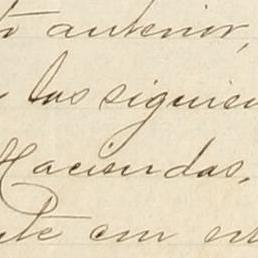 anterior,
las siguien
Haciendas,
te con